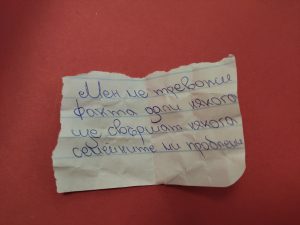 Мен ме тревожи
факта дали някога
ще свършат някога
семейните ни проблеми